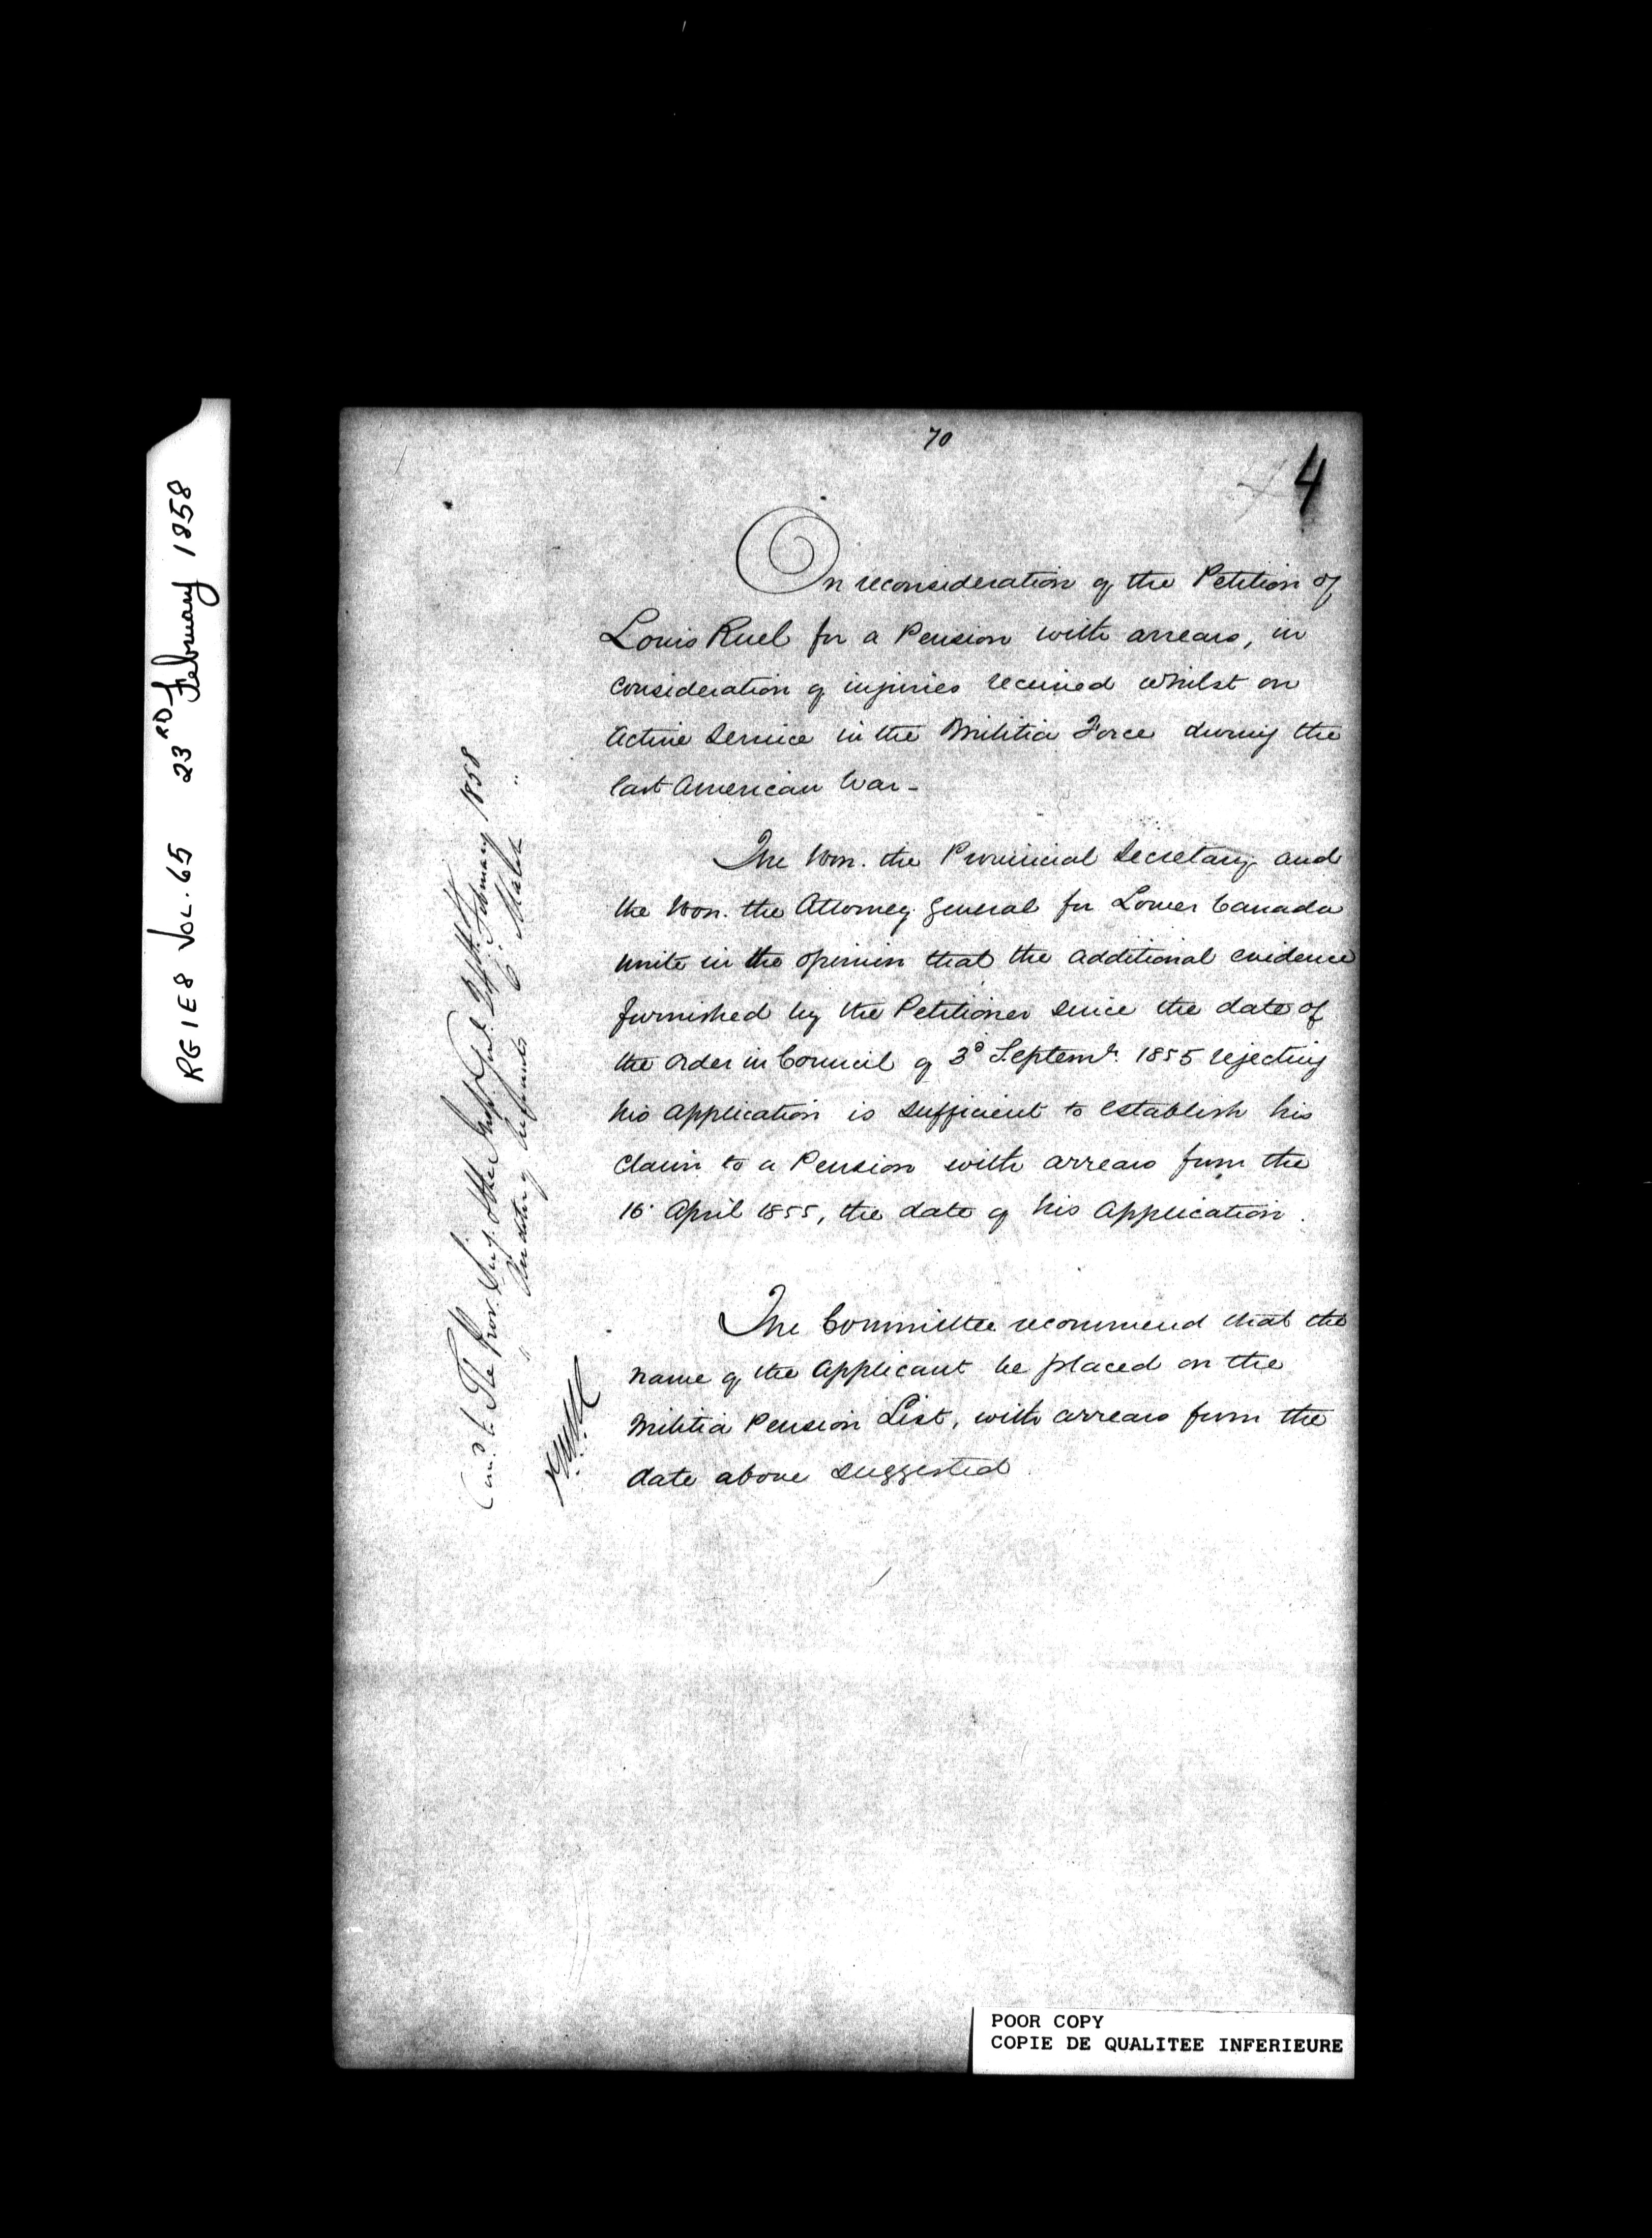 RG 1 E 8 VOL. 65 23RD February 1858
70
4
On reconsideration of the Petition of
Louis Ruel for a Pension with arrears, in
consideration of injuries received whilst on
active service in the Militia Force during the
last American War -
The Hon. the Provincial Secretary and
the Hon. the Attorney General for Lower Canada
unite in the opinion that the additional evidence
furnished by the Petitioner since the date of
the order in Council of 3d Septemr. 1855 rejecting
his application is sufficient to establish his
claim to a Pension with arrears from the
16 April 1855, the date of his application.
The Committee recommend that the
name of the Applicant be placed on the
Militia Pension List, with arrears from the
date above suggested.
to the Prov. Secy. February 1858
" March "
POOR COPY
COPIE DE QUALITEE INFERIEURE